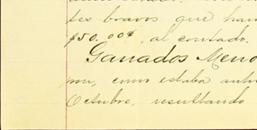 des bravos que han
$50.00¢, al contado.
Ganados Meno
por, como estaba auto
Octubre, resultando